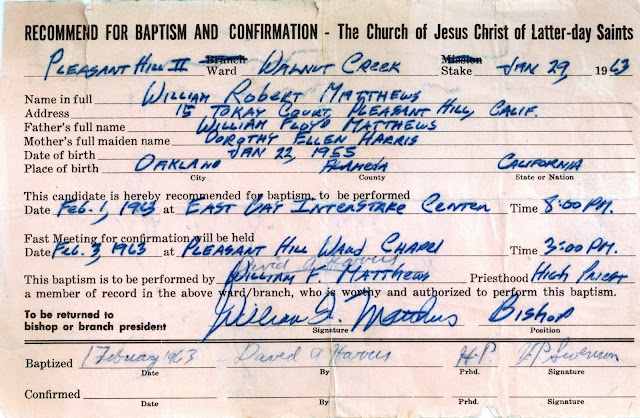 RECOMMEND FOR BAPTISM AND CONFIRMATION - The Church of Jesus Christ of Latter-day Saints
PLEASANT HILL II Branch Ward WALNUT CREEK Mission Stake JAN 29, 1963
Name in full WILLIAM ROBERT MATTHEWS
Address 15 TOKAY COURT, PLEASANT HILL, CALIF.
Father's full name WILLIAM FLOYD MATTHEWS
Mother's full maiden name DOROTHY ELLEN HARRIS
Date of birth JAN 22, 1955
Place of birth OAKLAND ALAMEDA CALIFORNIA
City County State or Nation
This candidate is hereby recommended for baptism, to be performed
Date FEB. 1, 1963 at EAST BAY INTERSTAKE CENTER Time 8:00 P.M.
Fast Meeting for confirmation will be held
Date FEB. 3, 1963 at PLEASANT HILL WARD CHAPEL Time 3:00 P.M.
David A Harris
This baptism is to be performed by WILLIAM F. MATTHEWS Priesthood HIGH PRIEST
a member of record in the above ward/branch, who is worthy and authorized to perform this baptism.
To be returned to
bishop or branch president William F. Matthews BISHOP
Signature Position
Baptized 1 February 1963 David A Harris H.P. V P Swenson
Date By Prhd. Signature
Confirmed
Date By Prhd. Signature